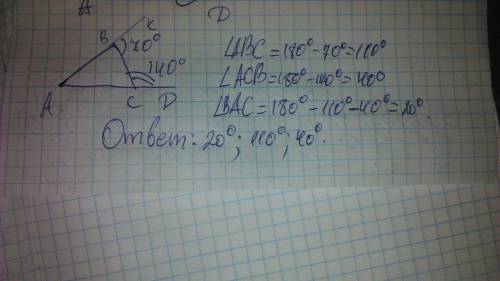 A D
K
B 70°
140°
A C D
∠ABC = 180° - 70° = 110°
∠ACB = 180° - 140° = 40°
∠BAC = 180° - 110° - 40° = 20°.
Ответ: 20°; 110°; 40°.